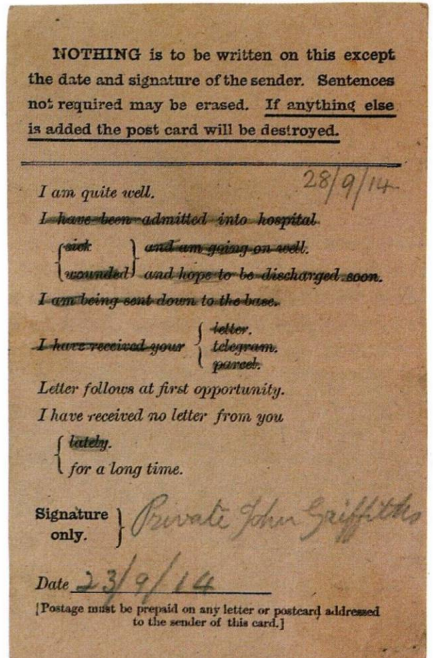 NOTHING is to be written on this except
the date and signature of the sender. Sentences
not required may be erased. If anything else
is added the post card will be destroyed.
28/9/14
I am quite well.
I have been admitted into hospital
sick and am going on well.
wounded and hope to be discharged soon.
I am being sent down to the base.
letter.
I have received your telegram.
parcel.
Letter follows at first opportunity.
I have received no letter from you
lately.
for a long time.
Signature
only.
Private John Griffiths
Date 23/9/14
[Postage must be prepaid on any letter or postcard addressed
to the sender of this card.]